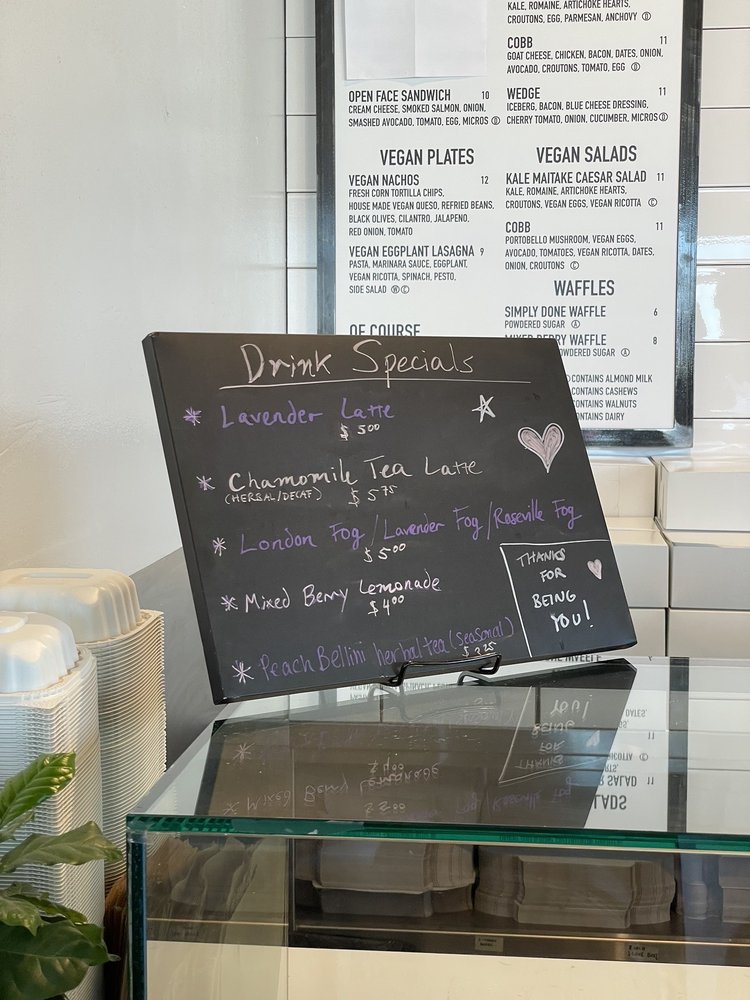 KALE, ROMAINE, ARTICHOKE HEARTS,
CROUTONS, EGG, PARMESAN, ANCHOVY Ⓓ
COBB 11
GOAT CHEESE, CHICKEN, BACON, DATES, ONION,
AVOCADO, CROUTONS, TOMATO, EGG Ⓓ
OPEN FACE SANDWICH 10
CREAM CHEESE, SMOKED SALMON, ONION,
SMASHED AVOCADO, TOMATO, EGG, MICROS Ⓓ
WEDGE 11
ICEBERG, BACON, BLUE CHEESE DRESSING,
CHERRY TOMATO, ONION, CUCUMBER, MICROS Ⓓ
VEGAN PLATES
VEGAN NACHOS 12
FRESH CORN TORTILLA CHIPS,
HOUSE MADE VEGAN QUESO, REFRIED BEANS,
BLACK OLIVES, CILANTRO, JALAPENO,
RED ONION, TOMATO
VEGAN EGGPLANT LASAGNA 9
PASTA, MARINARA SAUCE, EGGPLANT,
VEGAN RICOTTA, SPINACH, PESTO,
SIDE SALAD Ⓦ Ⓒ
OF COURSE
VEGAN SALADS
KALE MAITAKE CAESAR SALAD 11
KALE, ROMAINE, ARTICHOKE HEARTS,
CROUTONS, VEGAN EGGS, VEGAN RICOTTA Ⓒ
COBB 11
PORTOBELLO MUSHROOM, VEGAN EGGS,
AVOCADO, TOMATOES, VEGAN RICOTTA, DATES,
ONION, CROUTONS Ⓒ
WAFFLES
SIMPLY DONE WAFFLE 6
POWDERED SUGAR Ⓐ
MIXED BERRY WAFFLE 8
POWDERED SUGAR Ⓐ
CONTAINS ALMOND MILK
CONTAINS CASHEWS
CONTAINS WALNUTS
CONTAINS DAIRY
Drink Specials
* Lavender Latte
$ 5.00
* Chamomile Tea Latte
(HERBAL/DECAF) $ 5.75
* London Fog / Lavender Fog / Roseville Fog
$ 5.00
* Mixed Berry Lemonade
$ 4.00
* Peach Bellini herbal tea (seasonal)
THANKS
FOR
BEING
YOU!